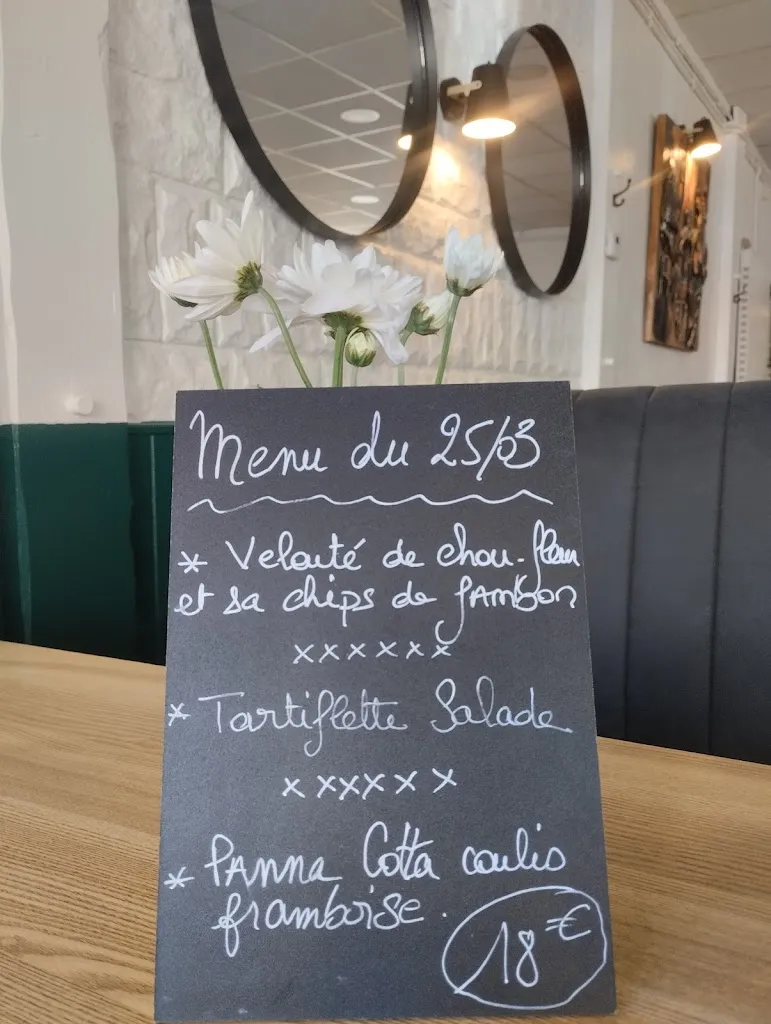 Menu du 25/03
* Velouté de chou-fleur
et sa chips de jambon
xxxxxx
* Tartiflette Salade
xxxxxx
* Panna Cotta coulis
framboise.
18€